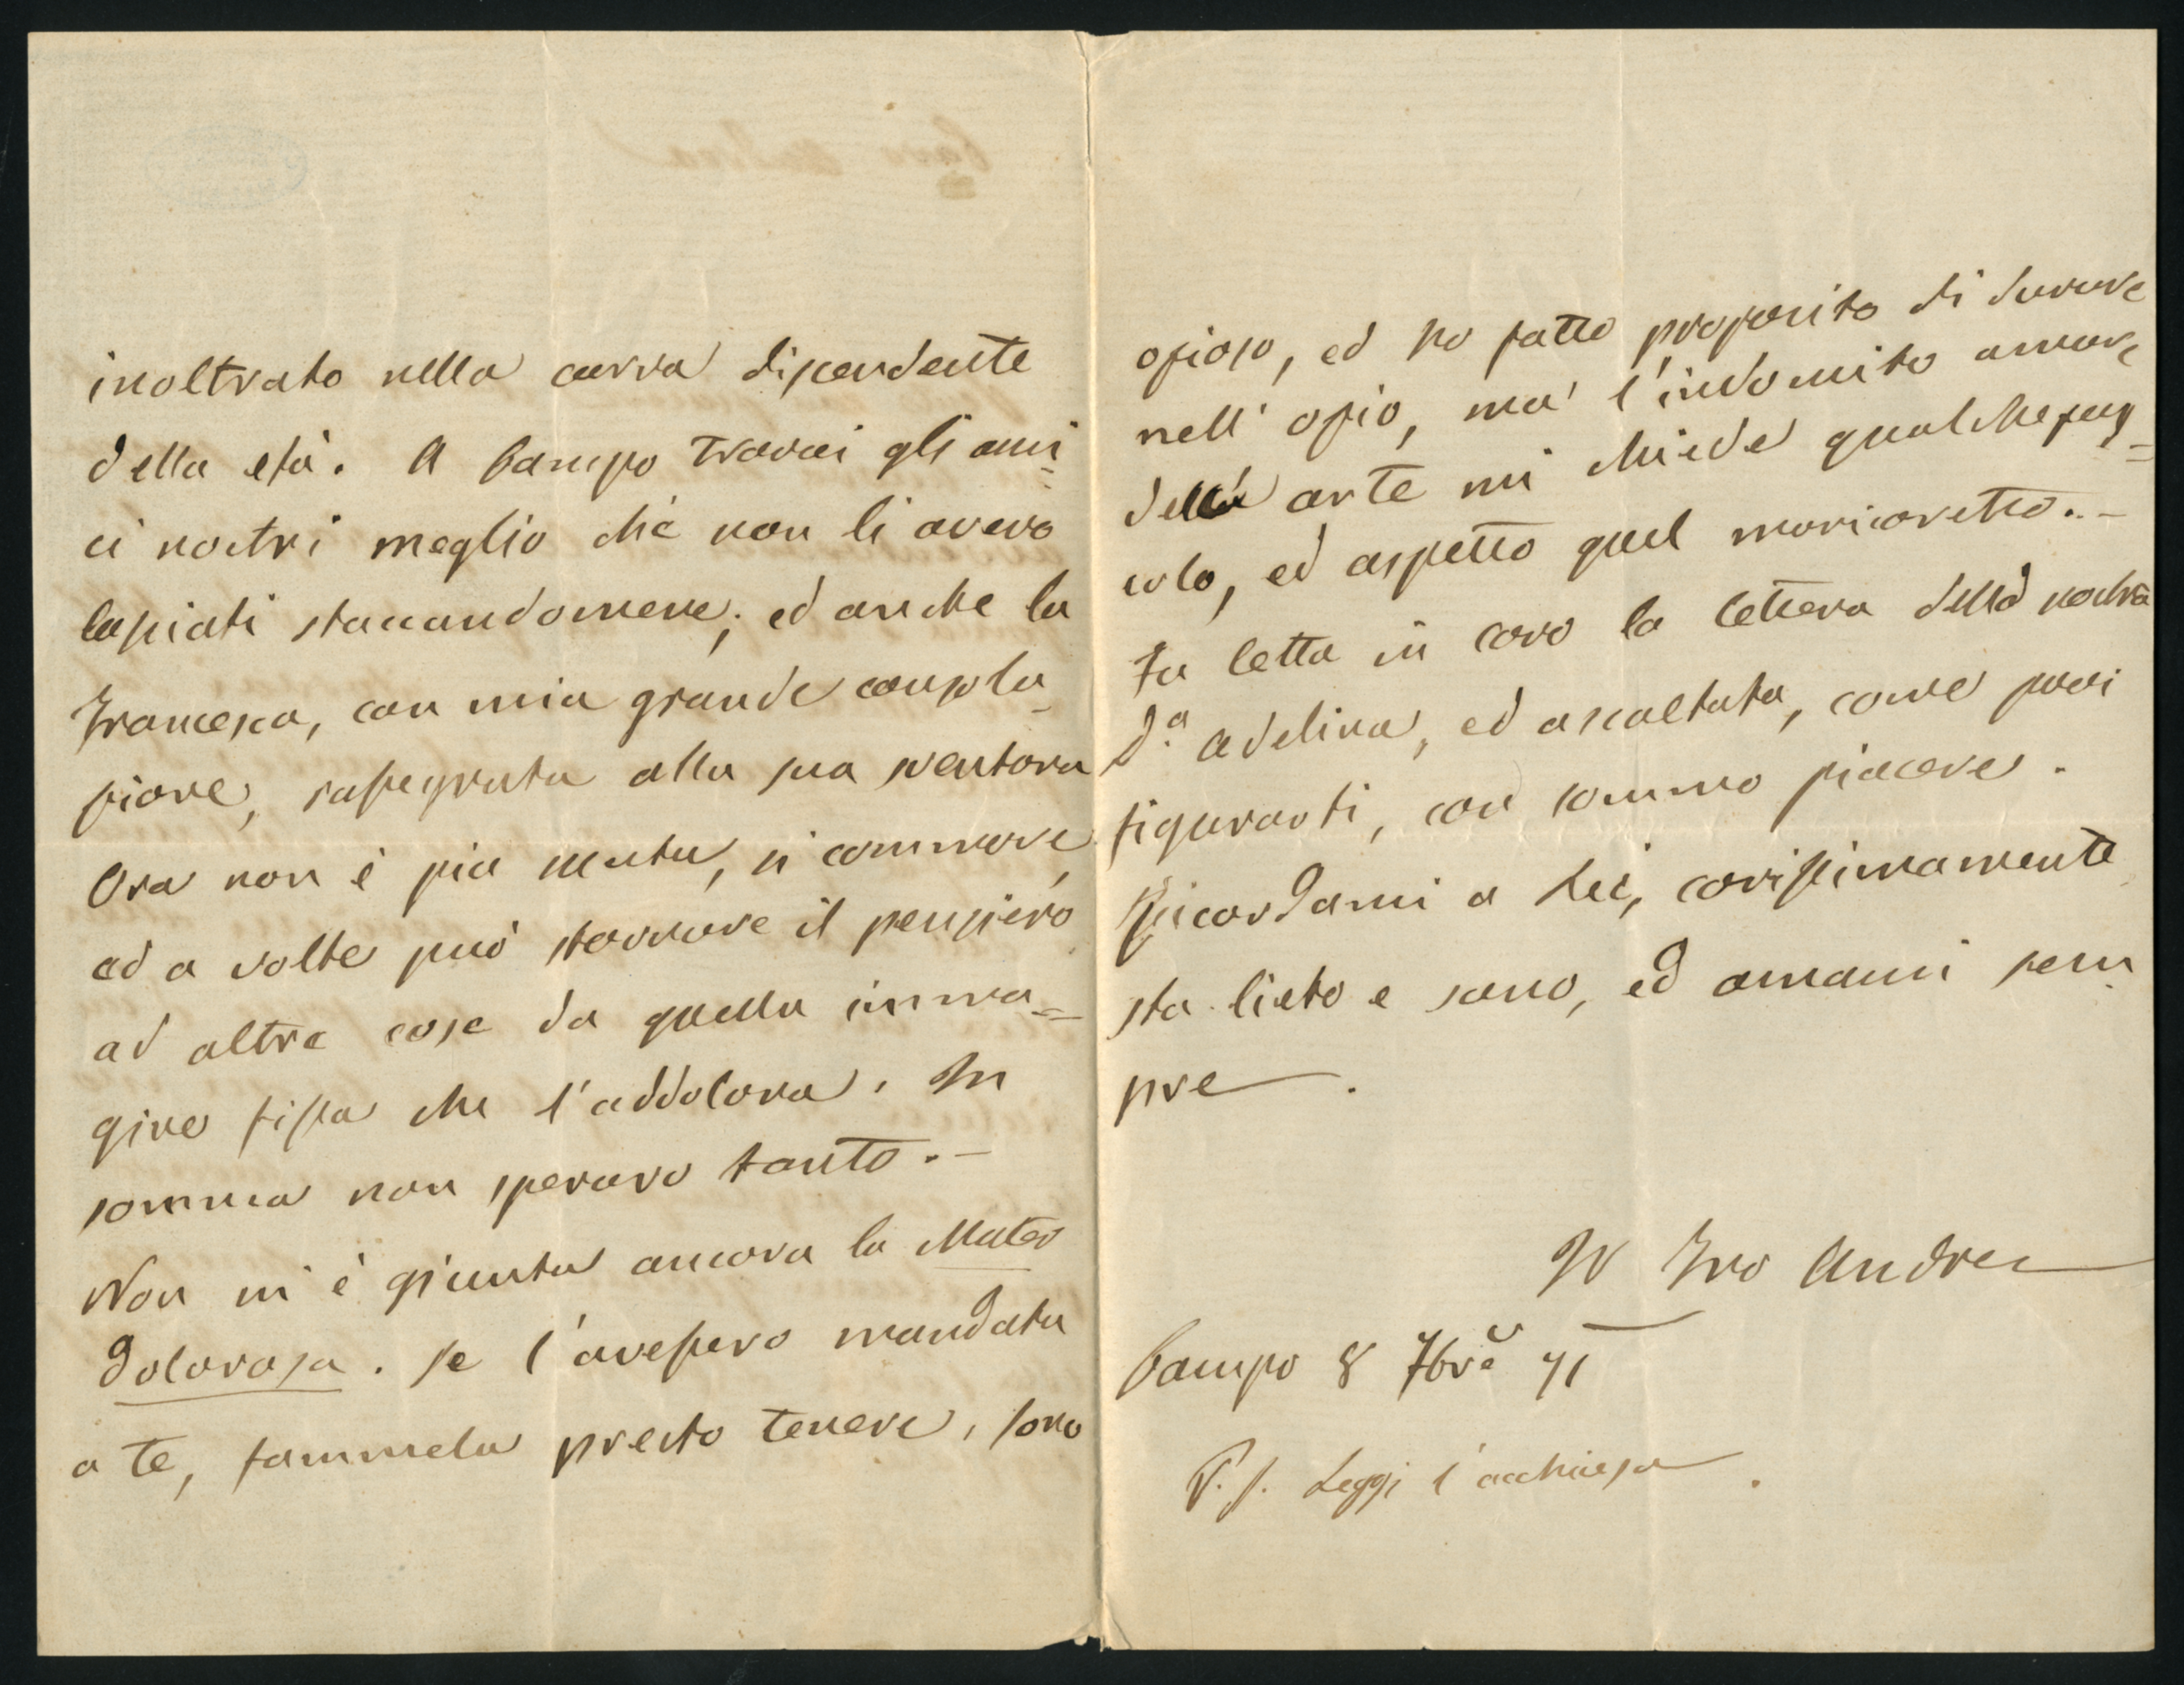 inoltrato nella curva discendente
della età. A Campo trovai gli ami=
ci nostri meglio che non li avevo
lasciati staccandomene; ed anche la
Francesca, con mia grande consola-
zione, rassegnata alla sua sventura
Ora non è più muta, si commove,
ed a volte può stornare il pensiero
ad altre cose da quella imma=
gine fissa che l'addolora. In
somma non speravo tanto. -
Non mi è giunta ancora la Mater
dolorosa. Se l'avessero mandata
a te, fammela presto tenere, sono
ozioso, ed ho fatto proposito di durare
nell' ozio, ma l'indomito amore
della arte mi chiede qualche sug=
colo, ed aspetto quel manicaretto. -
Fu letta in coro la lettera della nostra
D.a Adelina, ed ascoltata, come puoi
figurarti, con sommo piacere.
Ricordami a Lei, carissimamente
sta lieto e sano, ed amami sem
pre.
Il Tuo Andrea
Campo 8 7bre 71
P.S. Leggi l'acchiusa.